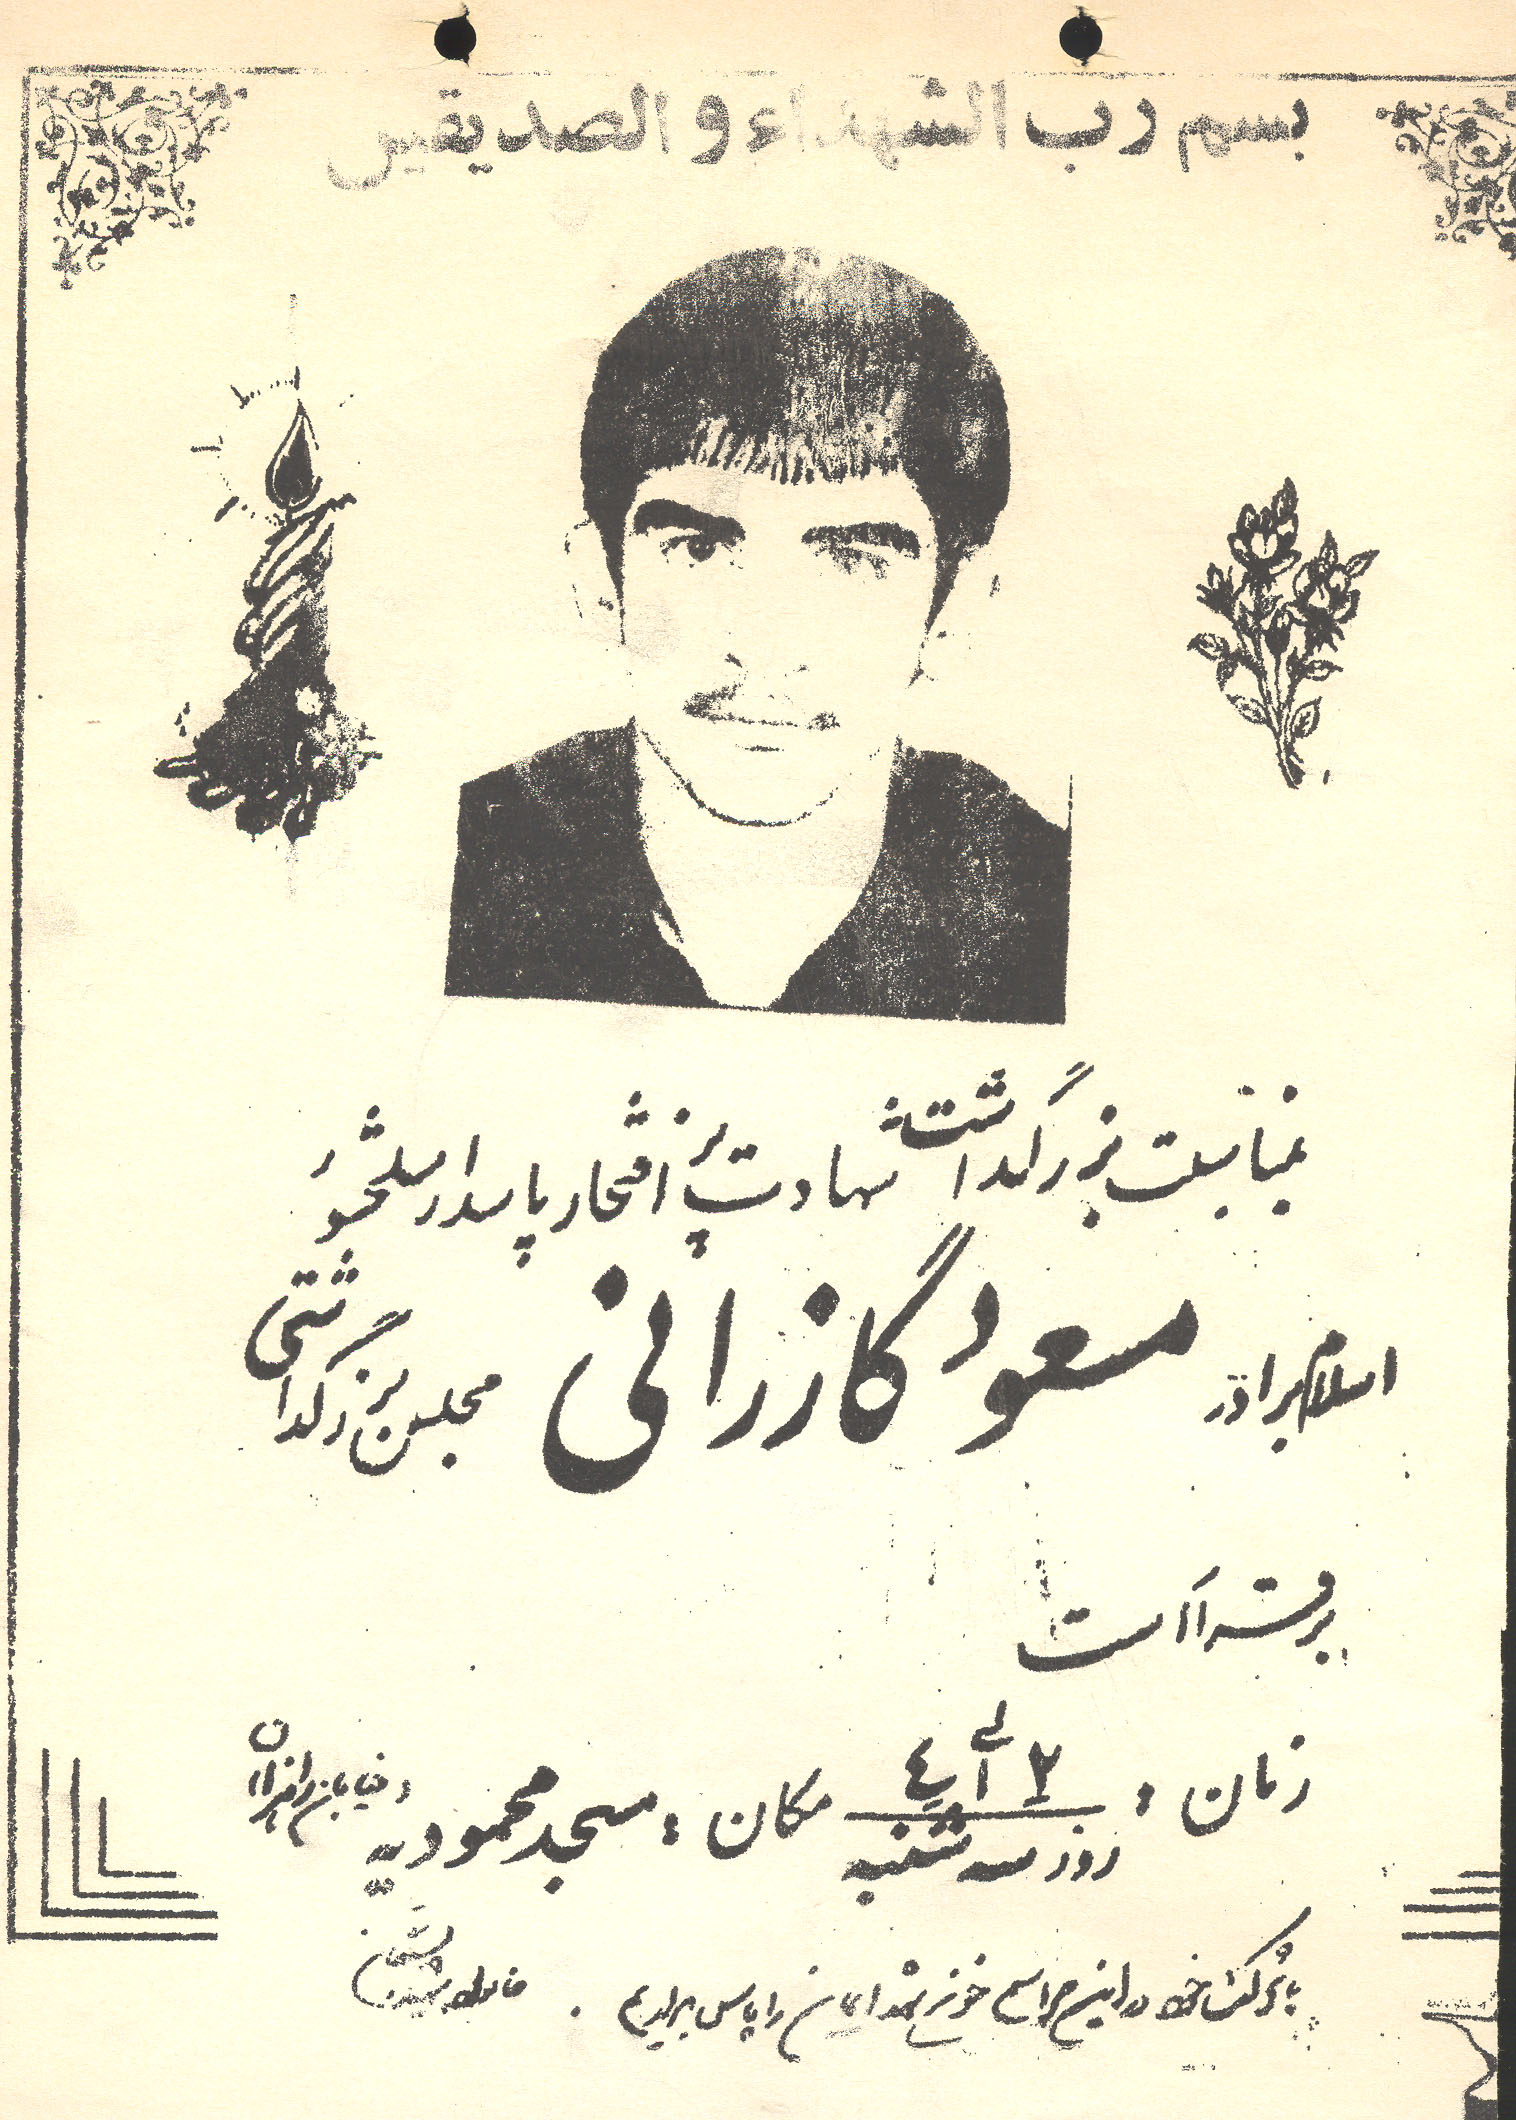 بسم رب الشهداء و الصدیقین
بمناسبت بزرگداشت شهادت پر افتخار پاسدار سلحشور
اسلام برادر مسعود گازرانی مجلس بزرگداشتی
برقرار است
زمان : ۲ الی ٤ مکان : مسجد محمودیه
روز سه شنبه
با شرکت خود در این مراسم خون شهدایمان را پاس بداریم .
خانواده شهید